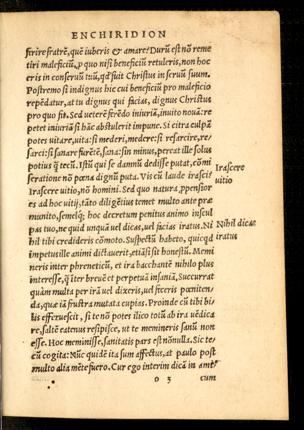 ENCHIRIDION
ferire fratrẽ, quẽ iuberis & amare? Durũ est nõ reme
tiri maleficiũ, ꝓ quo nisi beneficiũ retuleris, non hoc
eris in conseruũ tuũ, qđ fuit Christus in seruũ suum.
Postremo si indignus hic cui beneficiũ pro maleficio
repẽdatur, at tu dignus qui facias, dignus Christus
pro quo fit. Sed veterẽ ferẽdo iniuriã, inuito nouã: re
petet iniuriã si hãc abstulerit impune. Si citra culpã
potes vitare, vita: si mederi, medere: si resarcire, re/
sarci: si sanare furẽtẽ, sana: sin minus, pereat ille solus
potius q̃ tecũ. Istũ qui se damnũ dedisse putat, cõmi
seratione nõ pœna dignũ puta. Vis cũ laude irasci?
Irascere
uitio
Irascere uitio, nõ homini. Sed quo natura ꝓpensior
es ad hoc uitij, tãto diligẽtius temet multo ante præ
munito, semelq́; hoc decretum penitus animo inscul
pas tuo, ne quid unquã uel dicas, uel facias iratus. Ni
Nihil dicas
iratus
hil tibi credideris cõmoto. Suspectũ habeto, quicqd
impetus ille animi dictauerit, etiã si sit honestũ. Memi
neris inter phreneticũ, et ira bacchantẽ nihilo plus
interesse, q̃ iter breuẽ et perpetuã insaniã, Succurrat
quàm multa per irã uel dixeris, uel feceris pœniten-
da, quæ iã frustra mutata cupias. Proinde cũ tibi bi
lis efferuescit, si te nõ potes ilico totũ ab ira uẽdica
re, saltẽ eatenus resipisce, ut te memineris sanũ non
esse. Hoc meminisse, sanitatis pars est nõnulla. Sic te/
cũ cogita: Nũc quidẽ ita sum affectus, at paulo post
multo alia mẽte fuero. Cur ego interim dicã in ami/
o 3
cum